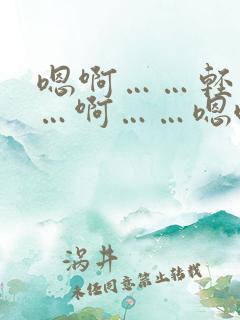 嗯啊……轻
…啊……嗯
涡井
未经同意禁止转载